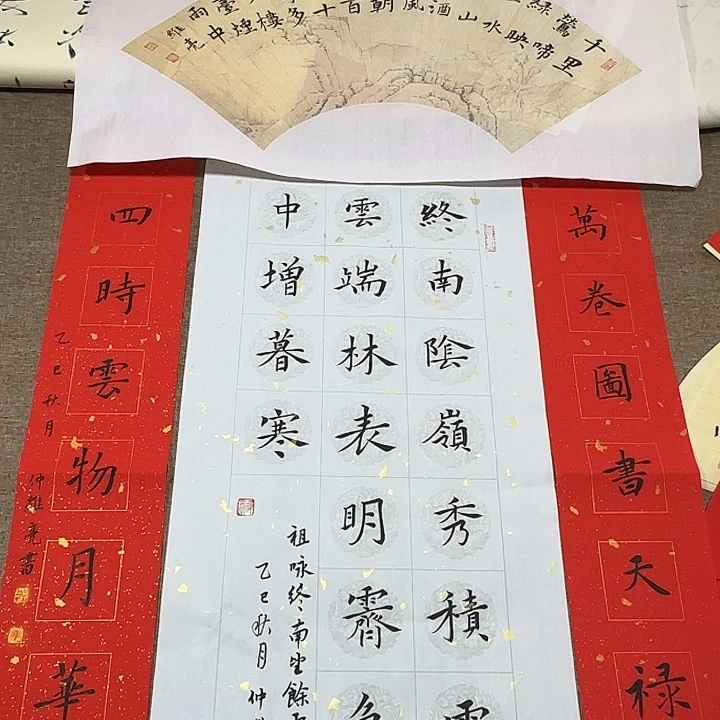 千里
鶯啼
綠映
水
山
酒
風
朝
百
十
多
樓
臺煙
雨中
雒亮
萬卷圖書天祿
終南陰嶺秀積雪
雲端林表明霽色
中增暮寒
祖咏終南望餘雪
乙巳秋月仲
四時雲物月華
乙巳秋月仲雒亮書